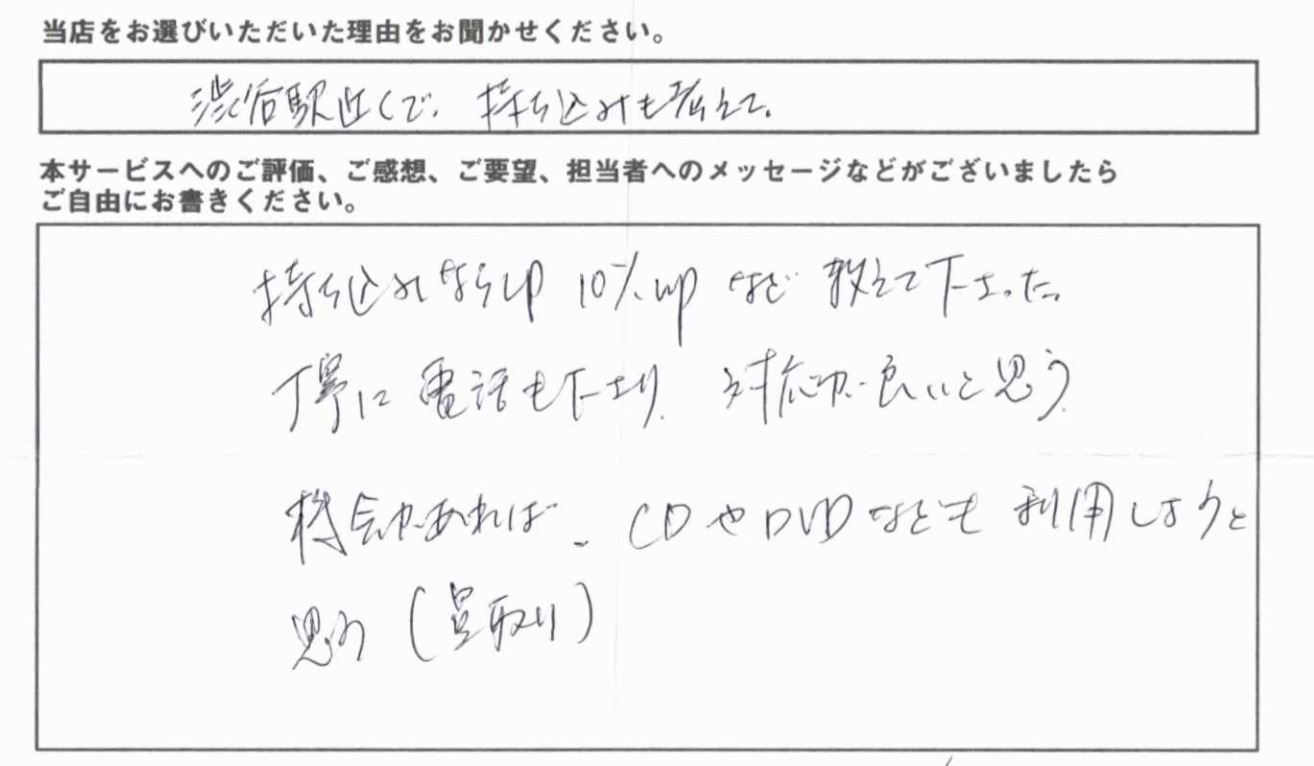 当店をお選びいただいた理由をお聞かせください。
渋谷駅近くで、持ち込みも考えて。
本サービスへのご評価、ご感想、ご要望、担当者へのメッセージなどがございましたら
ご自由にお書きください。
持ち込みなら 10%up など 教えて下さった。
丁寧に 電話も下さり、対応が良いと思う。
機会があれば、CDやDVDなども 利用しようと
思う（買取り）